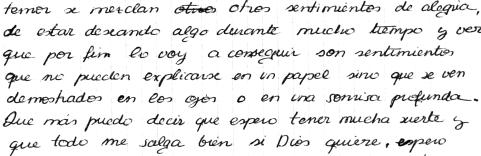 temor se mezclan otros otros sentimientos de alegria,
de estar deseando algo durante mucho tiempo y ver
que por fin lo voy a conseguir son sentimientos
que no pueden explicarse en un papel sino que se ven
demostrados en los ojos o en una sonrisa profunda.
Que más puedo decir que espero tener mucha suerte y
que todo me salga bien si Dios quiere, espero